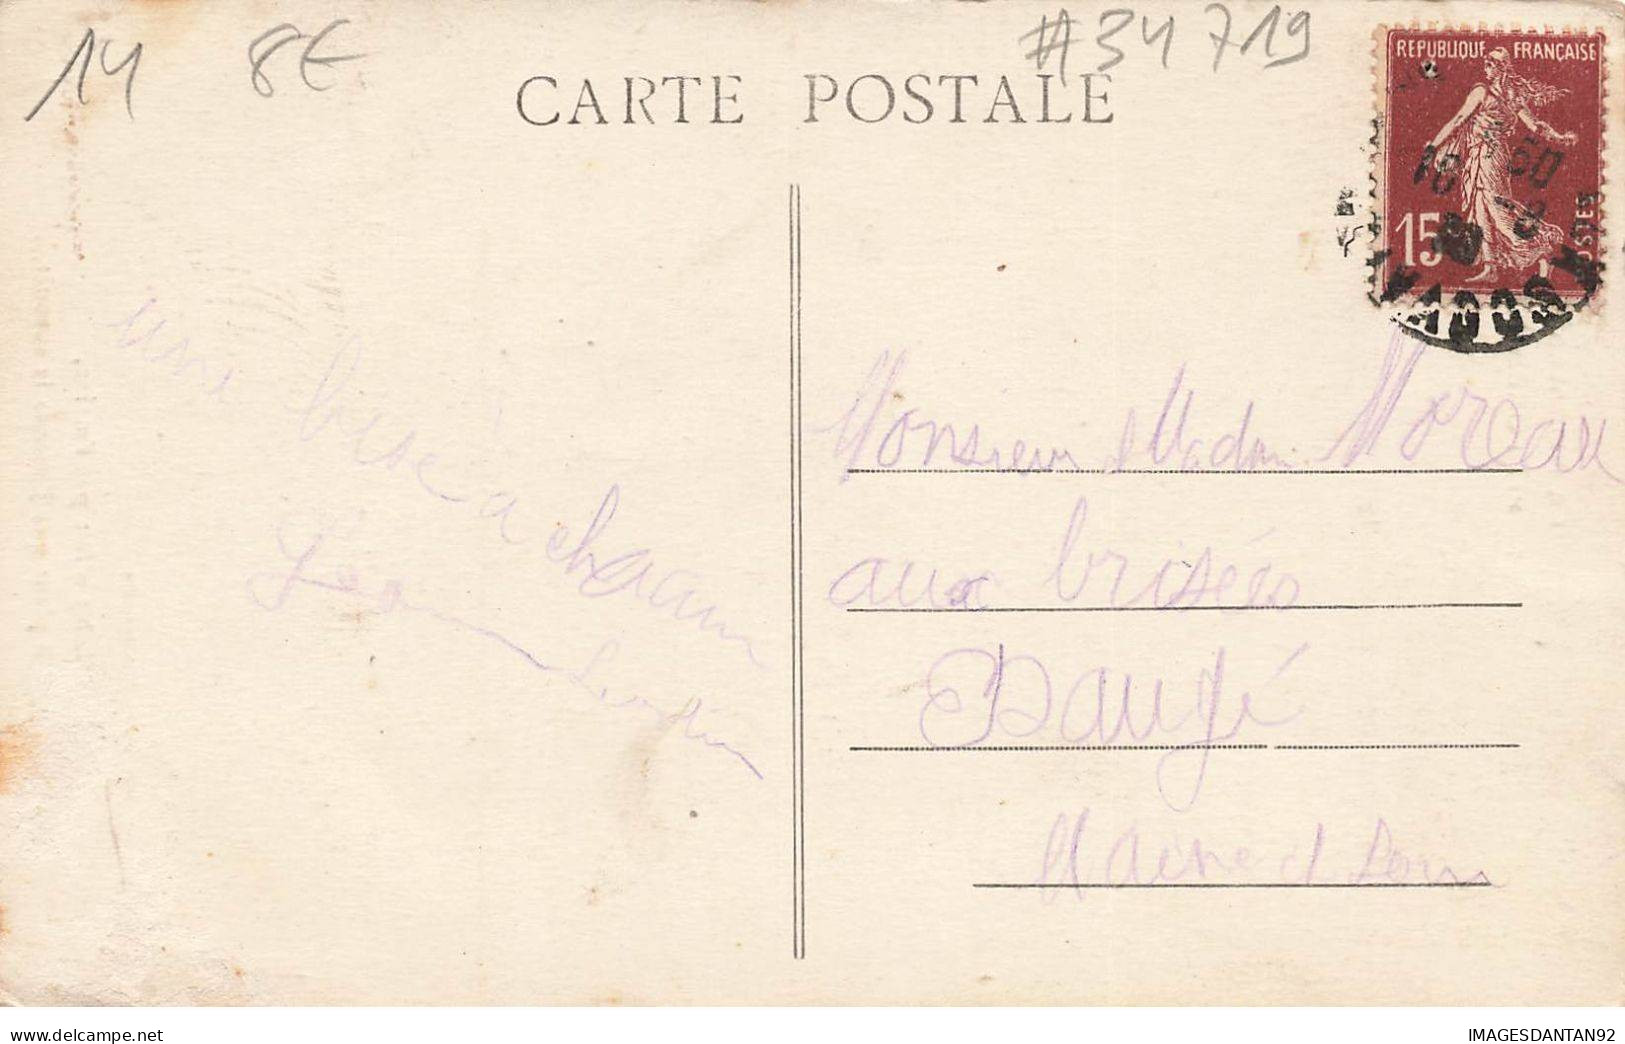 14 8€ #34719
CARTE POSTALE
REPUBLIQUE FRANÇAISE
16 30
15
POSTES
CALVADOS
une bise à chacun
Monsieur et Madam Moreau
aux brisées
Baugé
Maine et Loire
delcampe.net
IMAGESDANTAN92